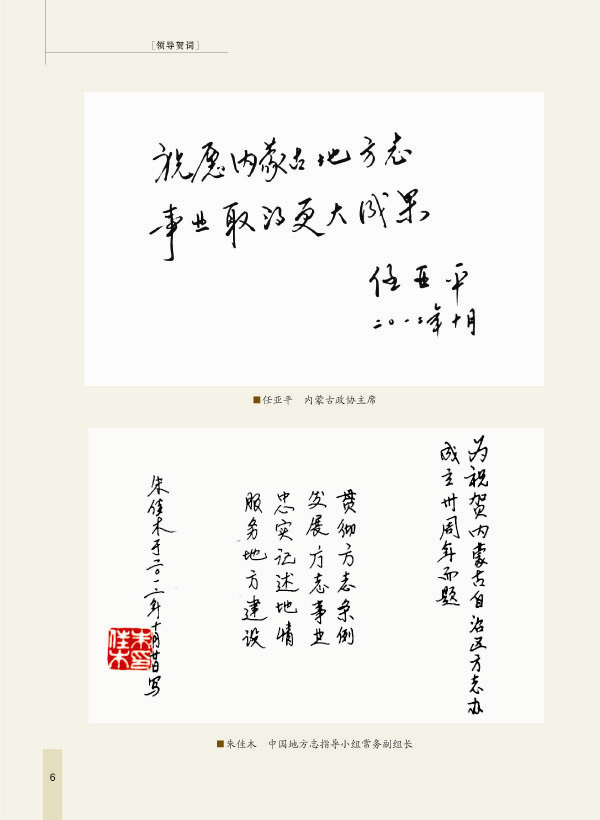 [领导贺词]
祝愿内蒙古地方志
事业取得更大成果
任亚平
二〇一二年十月
■任亚平 内蒙古政协主席
为祝贺内蒙古自治区方志办
成立卅周年而题
贯彻方志条例
发展方志事业
忠实记述地情
服务地方建设
朱佳木于二〇一二年十月廿日写
■朱佳木 中国地方志指导小组常务副组长
6